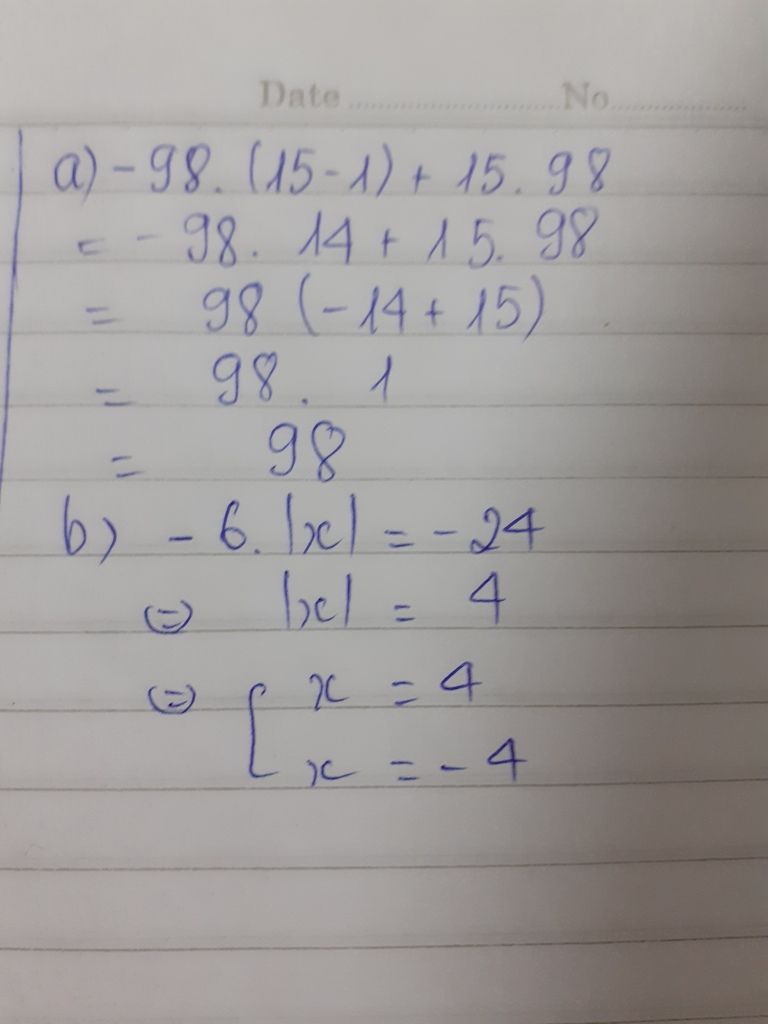 Date ........................ No ................
a) - 98. (15 - 1) + 15. 98
= - 98. 14 + 15. 98
= 98 (- 14 + 15)
= 98. 1
= 98
b) - 6. |x| = - 24
⇔ |x| = 4
⇔ [ x = 4
x = - 4